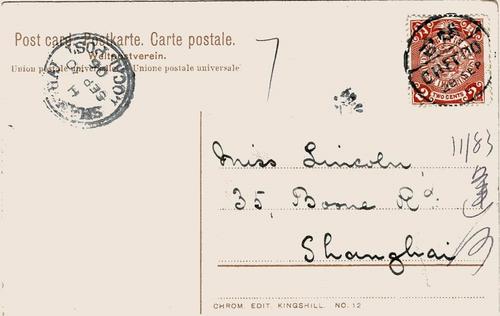 Post card. Postkarte. Carte postale.
Weltpostverein.
Union postale universelle. Unione postale universale
7
CHEFOO
SEP
2 TWO CENTS 2
LOCAL POST
SEP
11/83
Miss Lincoln,
35, Boone Rd.
Shanghai
CHROM. EDIT. KINGSHILL. NO. 12